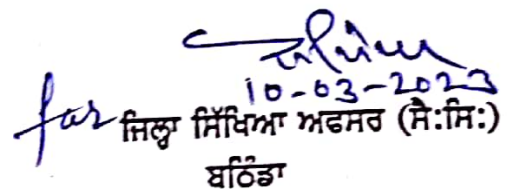 10-03-2023
for ਜਿਲ੍ਹਾ ਸਿੱਖਿਆ ਅਫਸਰ (ਸੈ:ਸਿ:)
ਬਠਿੰਡਾ